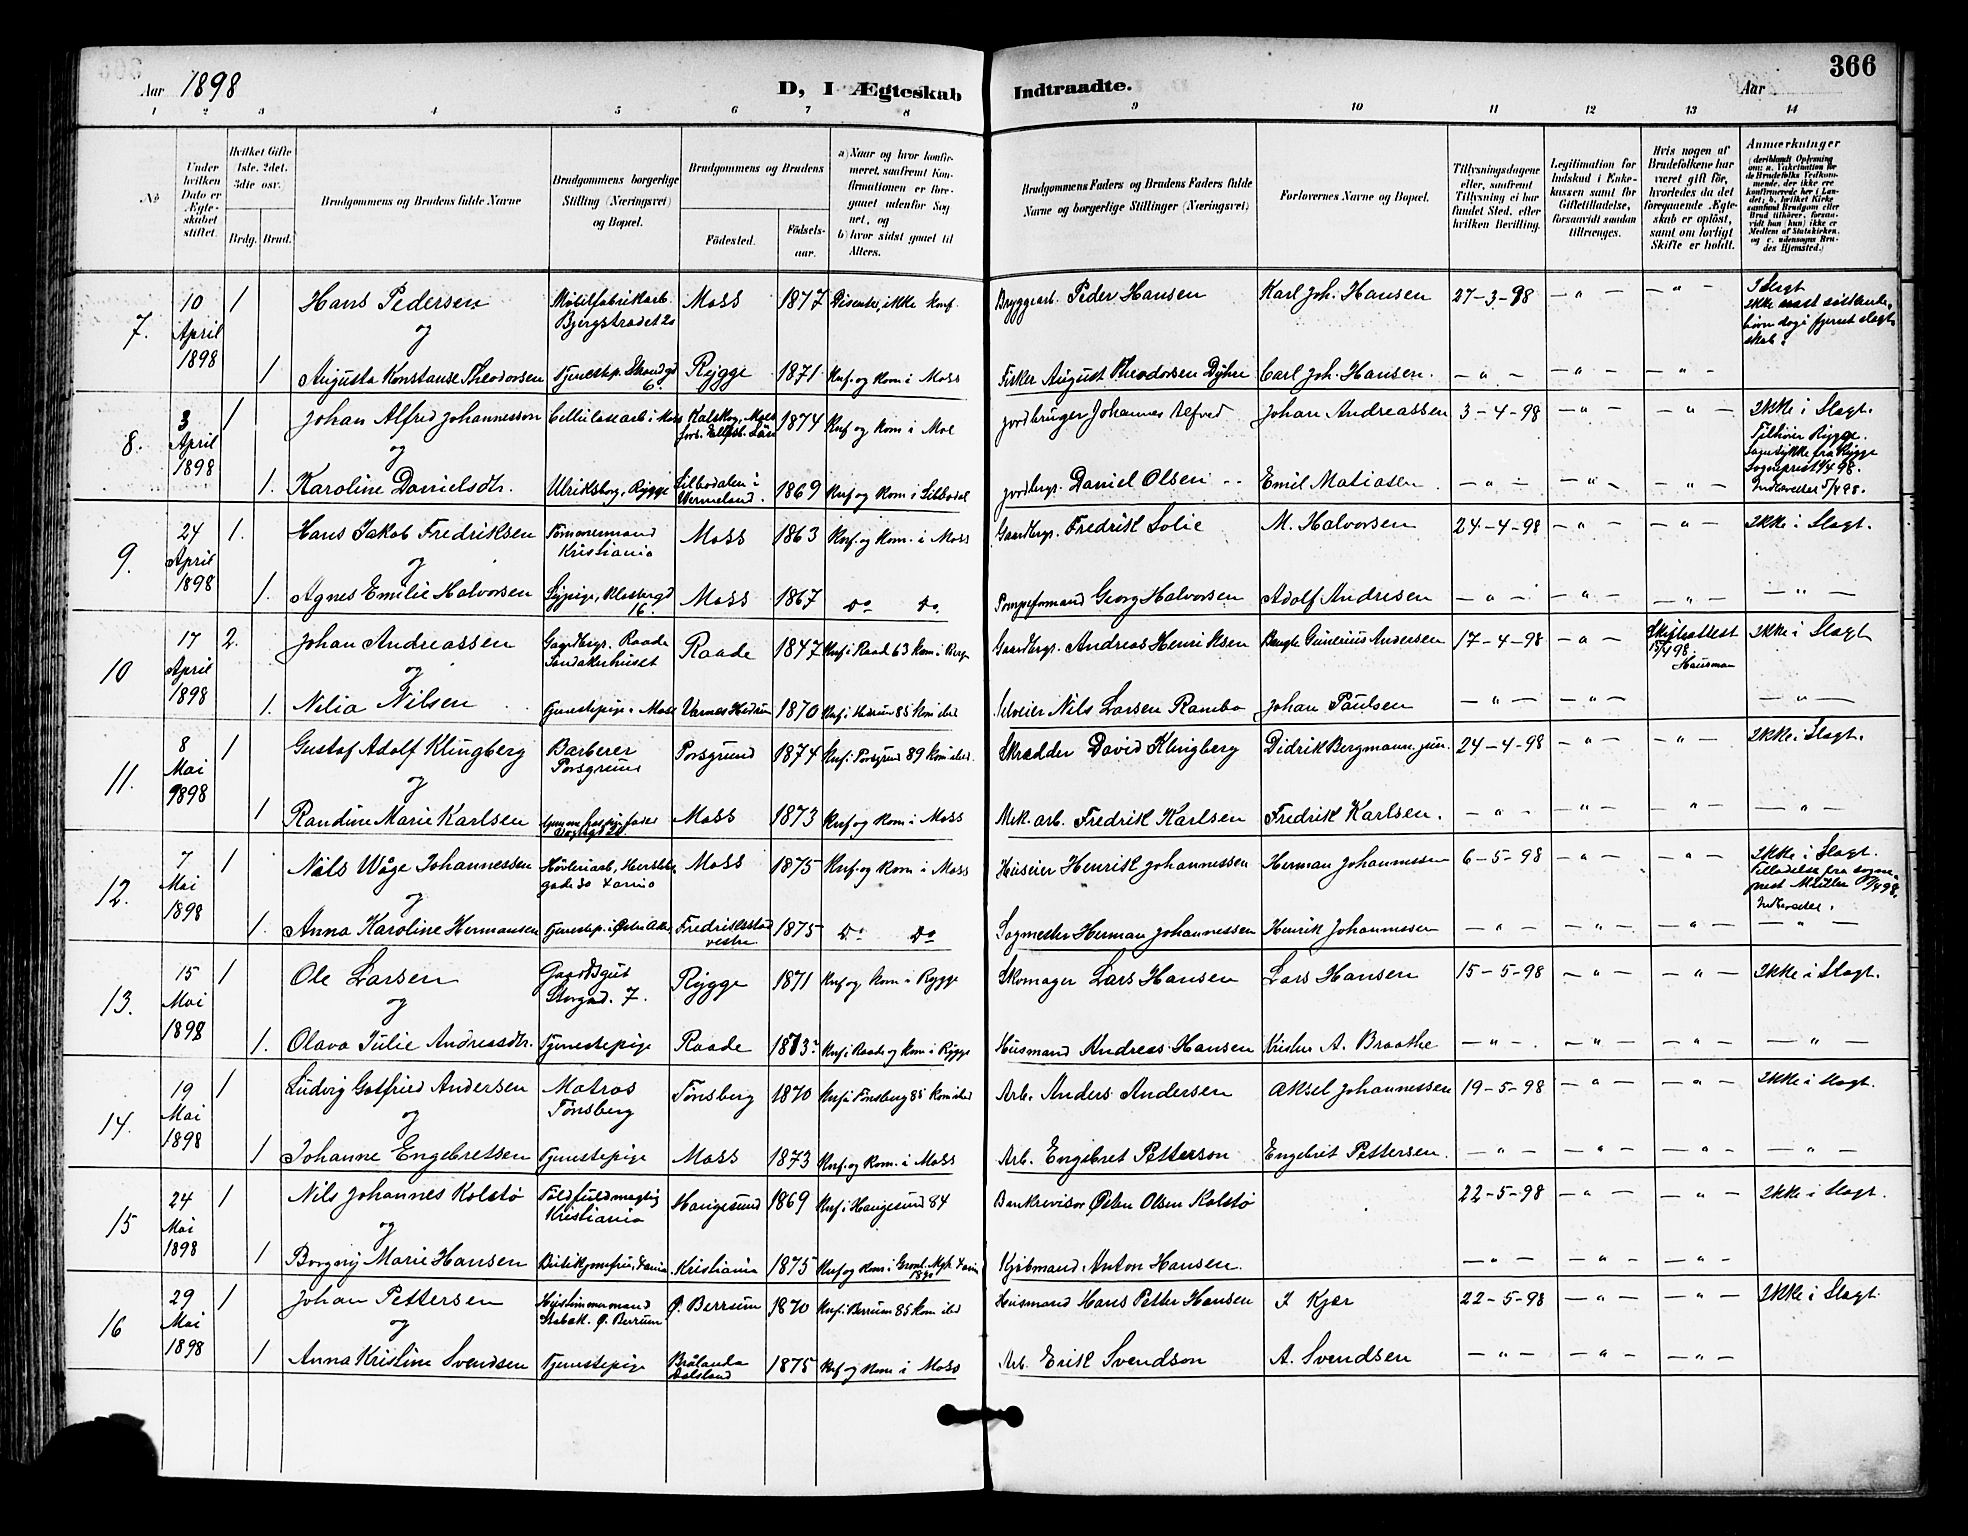 Aar 1898
D, I Ægteskab Indtraadte.
Aar
366
1 2 3 4 5 6 7 8 9 10 11 12 13 14
No
Under hvilken Dato er Ægteskabet stiftet.
Hvilket Gifte 1ste, 2det, 3die osv.
Brdg. Brud.
Brudgommens og Brudens fulde Navne
Brudgommens borgerlige Stilling (Næringsvei) og Bopæl.
Brudgommens og Brudens
Fødested.
Fødselsaar.
a) Naar og hvor konfirmeret, samfremt Konfirmationen er foregaaet udenfor Sognet, og
b) hvor sidst gaaet til Alters.
Brudgommens Faders og Brudens Faders fulde Navne og borgerlige Stillinger (Næringsvei)
Forlovernes Navne og Bopæl.
Tillysningsdagene eller, saafremt Tillysning ei har fundet Sted, efter hvilken Bevilling.
Legitimation for Indskud i Enkekassen samt for Giftetilladelse, forsaavidt saadan tiltrænges.
Hvis nogen af Brudefolkene har været gift før, hvorledes da det foregaaende Ægteskab er opløst, samt om lovligt Skifte er holdt.
Anmerkninger
7. 10 April 1898 1 Hans Pedersen Møbelfabrikarb. Bjergstrædet 20 Moss 1877 Disenter, ikke konf. Bryggearb. Peder Hansen Karl Joh. Hansen 27-3-98 — " — — " — I Slegt
og
1 Augusta Konstanse Theodorsen Tjenestep. Strandgd 6 Rygge 1871 Knf. og kom i Moss Fisker August Theodorsen Dyhre Carl Joh. Hansen. — " — — " — — " —
8. 3 April 1898 1 Johan Alfred Johannesson Cellulosearb. i Moss 1874 Knf og kom i Moss jordbruger Johannes Johan Andreassen 3-4-98 — " — — " — Ikke i Slegt. Tilhører Rygge.
og
1. Karoline Danielsdtr. Ulriksborg, Rygge Silbodalen i Wermeland. 1869 Knf og kom i Silbodal jordbrgr. Daniel Olsen Emil Matiasen — " — — " — — " —
9. 24 April 1898 1. Hans Jakob Fredriksen Tømmermand Kristiania Moss 1863 Knf. og kom. i Moss Gaardbrgr. Fredrik Solie M. Halvorsen 24-4-98 — " — — " — Ikke i Slegt.
og
1. Agnes Emilie Halvorsen Sypige, Klosbergd 16 Moss 1867 Do Do. Pompeformand Georg Halvorsen Adolf Andresen — " — — " — — " — — " —
10 17 April 1898 2. Johan Andreassen Gaardbrgr. Raade Sandakerhuset Raade 1847 Knf i Raade 63 kom i Berg Gaardbrgr. Andreas Henriksen Gunerius Andersen 17-4-98 — " — Skifteattest 15/4 98. Ikke i Slegt
og
1. Nilia Nilsen Tjenestepige, Moss Varnes Hedrum 1870 Knf. i Hedrum 85 kom ibd Selveier Nils Larsen Rambo Johan Paulsen — " — — " — — " —
11. 8 Mai 1898 1 Gustaf Adolf Klingberg Barberer Porsgrund Porsgrund 1874 Knf. i Porsgrund 89 kom ibd. Skrædder David Klingberg Didrik Bergmann jun. 24-4-98 — " — — " — Ikke i Slegt.
og
1 Randine Marie Karlsen Moss 1873 Knf og kom i Moss Mek. arb. Fredrik Karlsen Fredrik Karlsen. — " — — " — — " — — " —
12. 7 Mai 1898 1 Nils Wåge Johannessen Høvleriarb, Moss 1875 Knf. og kom i Moss Huseier Henrik Johannessen Herman Johannessen 6-5-98 — " — — " — Ikke i Slegt. Tilladelse fra sognepræst Müller
og
1. Anna Karoline Hermansen Tjenestep. i Østre Aker Fredriksstad vestre 1875 Do Do Sagmester Herman Johannessen Henrik Johannessen — " — — " — — " — — " —
13. 15 Mai 1898 1 Ole Larsen Gaardsgut Storgad. 7. Rygge 1871 Knf og kom i Rygge Skomager Lars Hansen Lars Hansen 15-5-98 — " — — " — Ikke i Slegt.
og
1. Olava Julie Andreasdtr. Tjenestepige Raade 1873 Knf i Raade og kom i Rygge Husmand Andreas Hansen Krister A. Braathe — " — — " — — " — — " —
14. 19 Mai 1898 1 Ludvig Gotfried Andersen Matros Tønsberg Tønsberg 1870 Knf i Tønsberg 85 kom ibd Arb. Anders Andersen Aksel Johannessen 19-5-98 — " — — " — Ikke i Slegt.
og
1 Johanne Engebretsen Tjenestepige Moss 1873 Knf. og kom. i Moss Arb. Engebret Petterson Engebret Pettersen. — " — — " — — " — — " —
15 24 Mai 1898 1 Nils Johannes Kolstø Toldfuldmægtig Kristiania Haugesund 1869 Knf. i Haugesund 84 Bankrevisor Østen Olsen Kolstø 22-5-98 — " — — " — Ikke i Slegt.
og
1 Borgny Marie Hansen Kristiania 1875 Knf og kom i Kjøbmand. Anton Hansen. — " — — " — — " —
16 29 Mai 1898 1 Johan Pettersen Hustømmermand Stabæk. Ø. Berrum Ø. Berrum 1870 Knf. i Berrum 85 kom ibd Husmand Hans Petter Hansen I Kjær 22-5-98 — " — — " — Ikke i Slegt.
og
1 Anna Kristine Svendsen Tjenestepige Brålanda Dalsland 1875 Knf og kom i Moss Arb. Erik Svendson A. Svendsen — " — — " — — " —